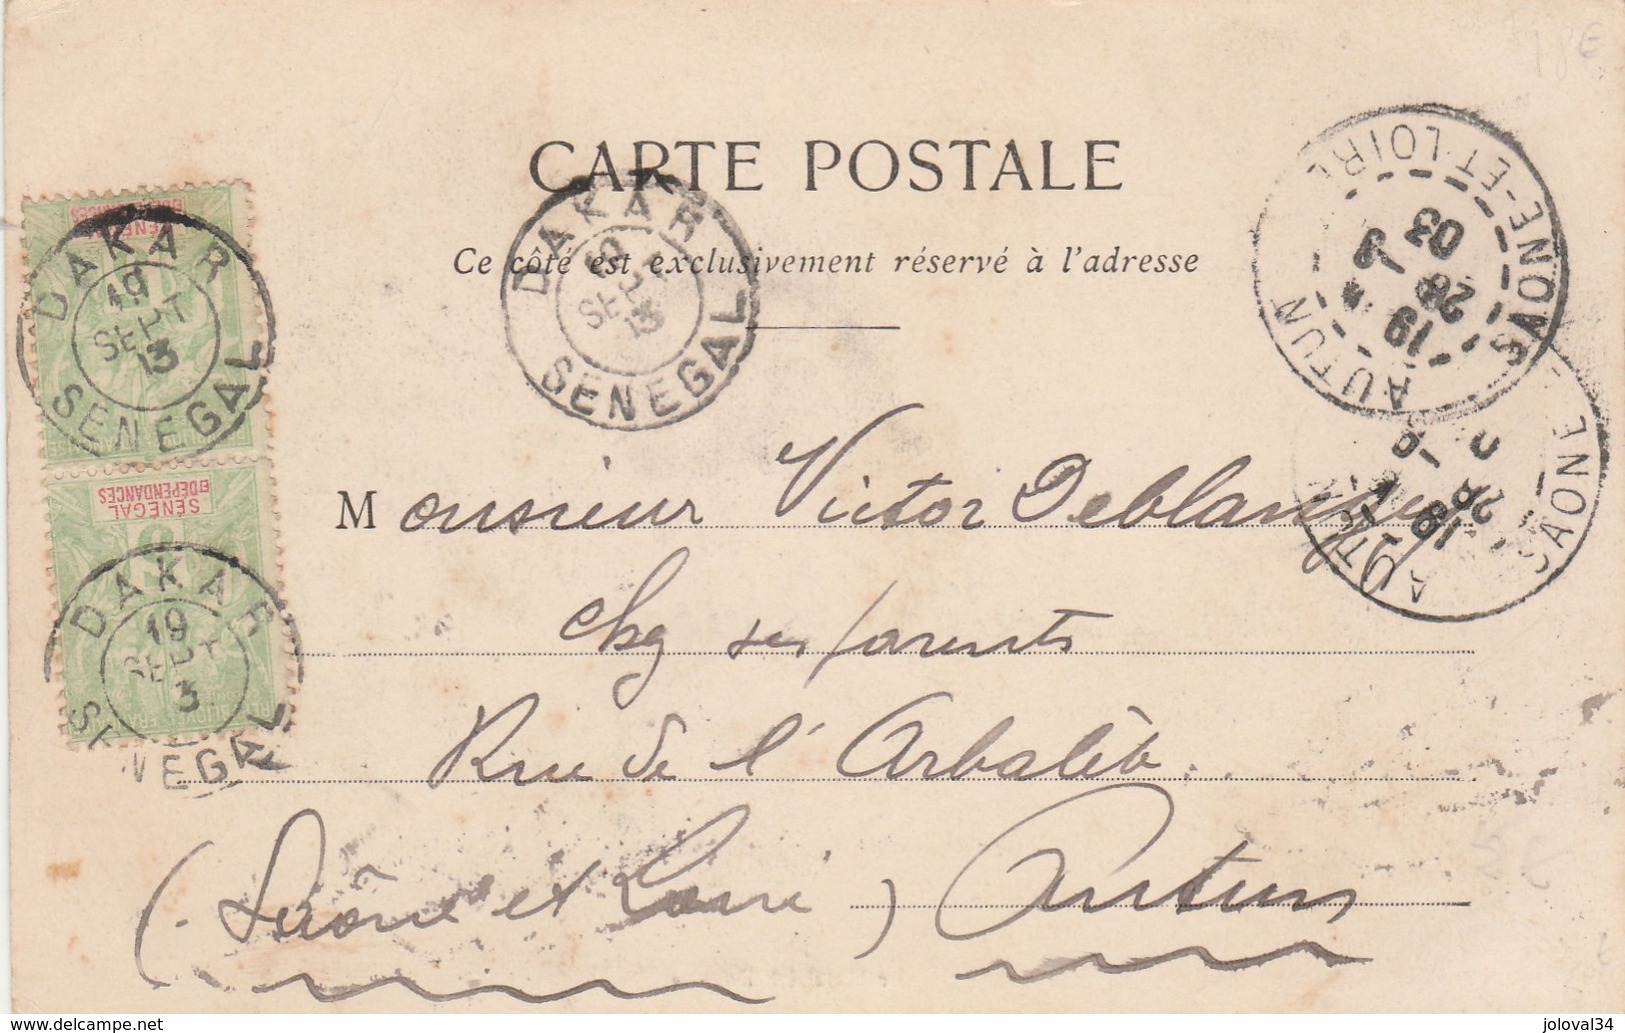 18€
CARTE POSTALE
Ce côté est exclusivement réservé à l'adresse
SÉNÉGAL
ET DÉPENDANCES
DAKAR
19
SEPT
13
SENEGAL
SÉNÉGAL
ET DÉPENDANCES
DAKAR
19
SEPT
3
SENEGAL
DAKAR
19
SEPT
13
SENEGAL
AUTUN
19
28
9
03
SAONE-ET-LOIRE
AUTUN
19
28
9
SAONE
Monsieur Victor Deblangey
chez ses parents
Rue de l'Arbalète
(Saône et Loire) Autun
delcampe.net
joloval34